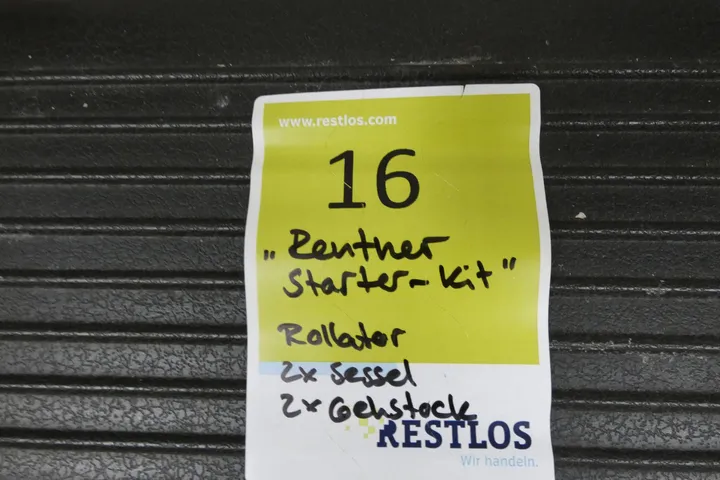 www.restlos.com
16
"Rentner
Starter-Kit"
Rollator
2x Sessel
2x Gehstock
RESTLOS
Wir handeln.